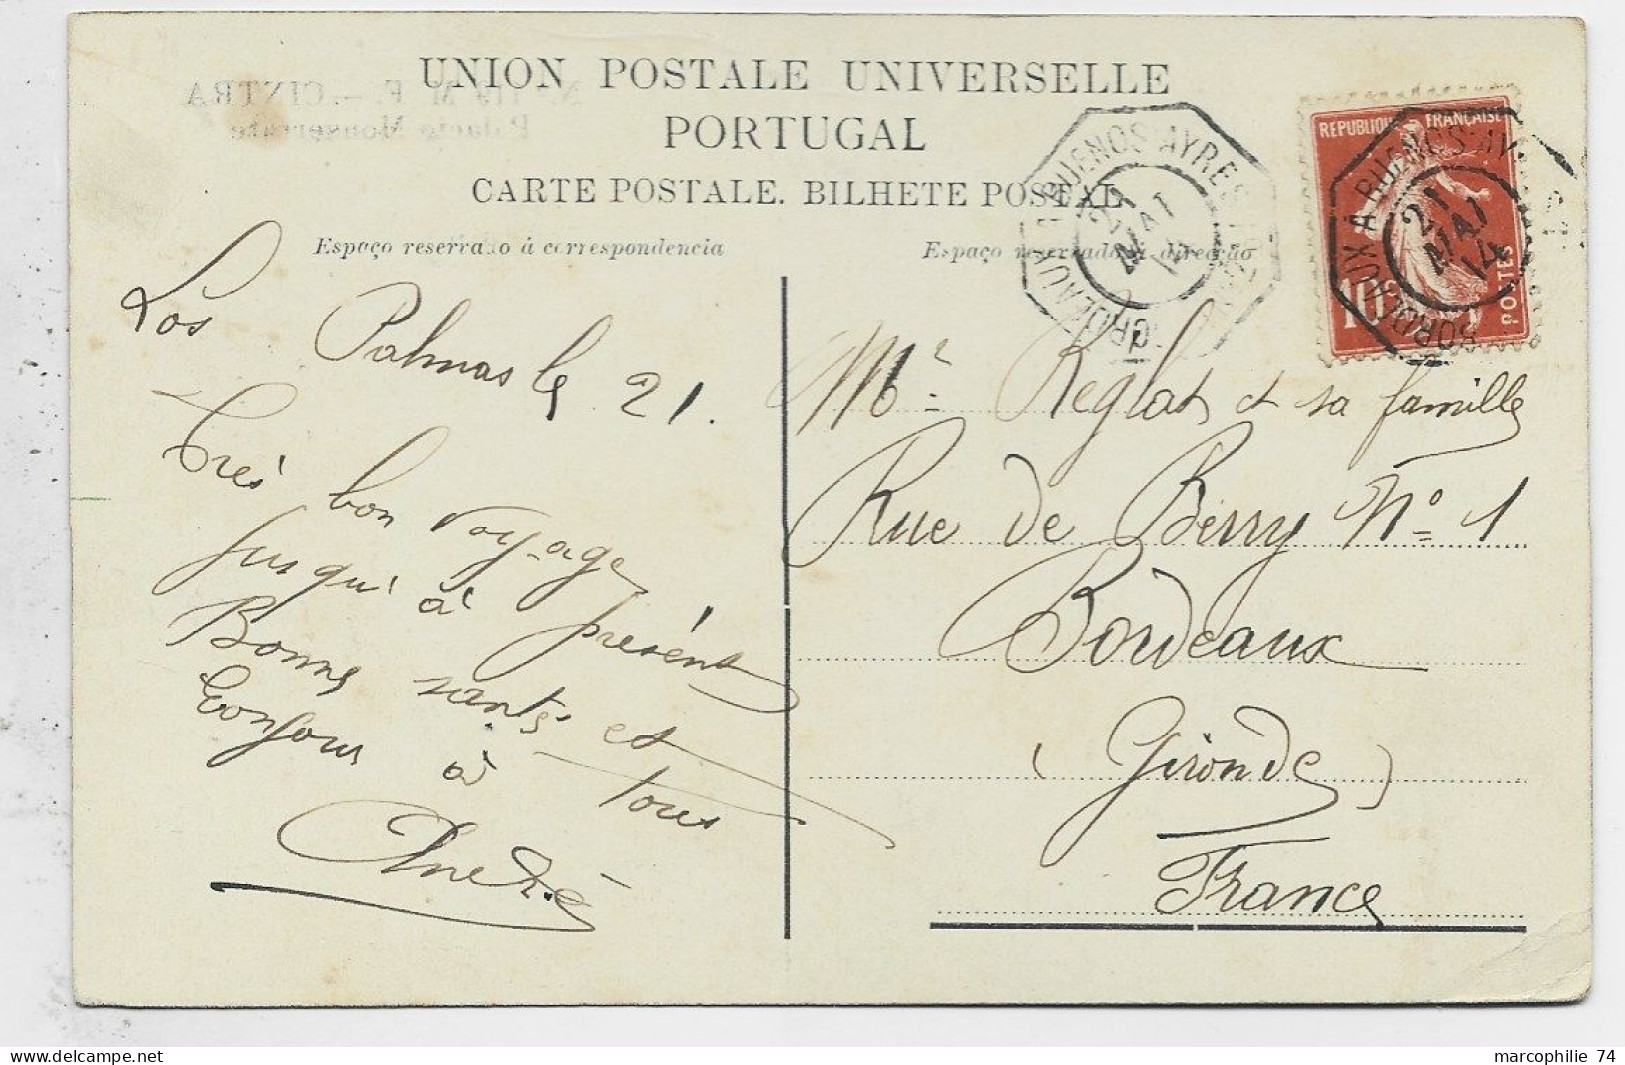 UNION POSTALE UNIVERSELLE
PORTUGAL
CARTE POSTALE. BILHETE POSTAL
Espaço reservado á correspondencia
Espaço reservado á direcção
N.º 119 M F. — CINTRA
Palacio Monserrate
BORDEAUX À BUENOS-AYRES
21
MAI
14
REPUBLIQUE FRANÇAISE
10
POSTES
BORDEAUX À BUENOS-AY
21
MAI
14
Los Palmas le 21.
Très bon voyage
jusqu'à présent
Bonne santé et
bonjour à tous
André
Mr Reglat et sa famille
Rue de Berry No 1
Bordeaux
(Gironde)
France
marcophilie 74